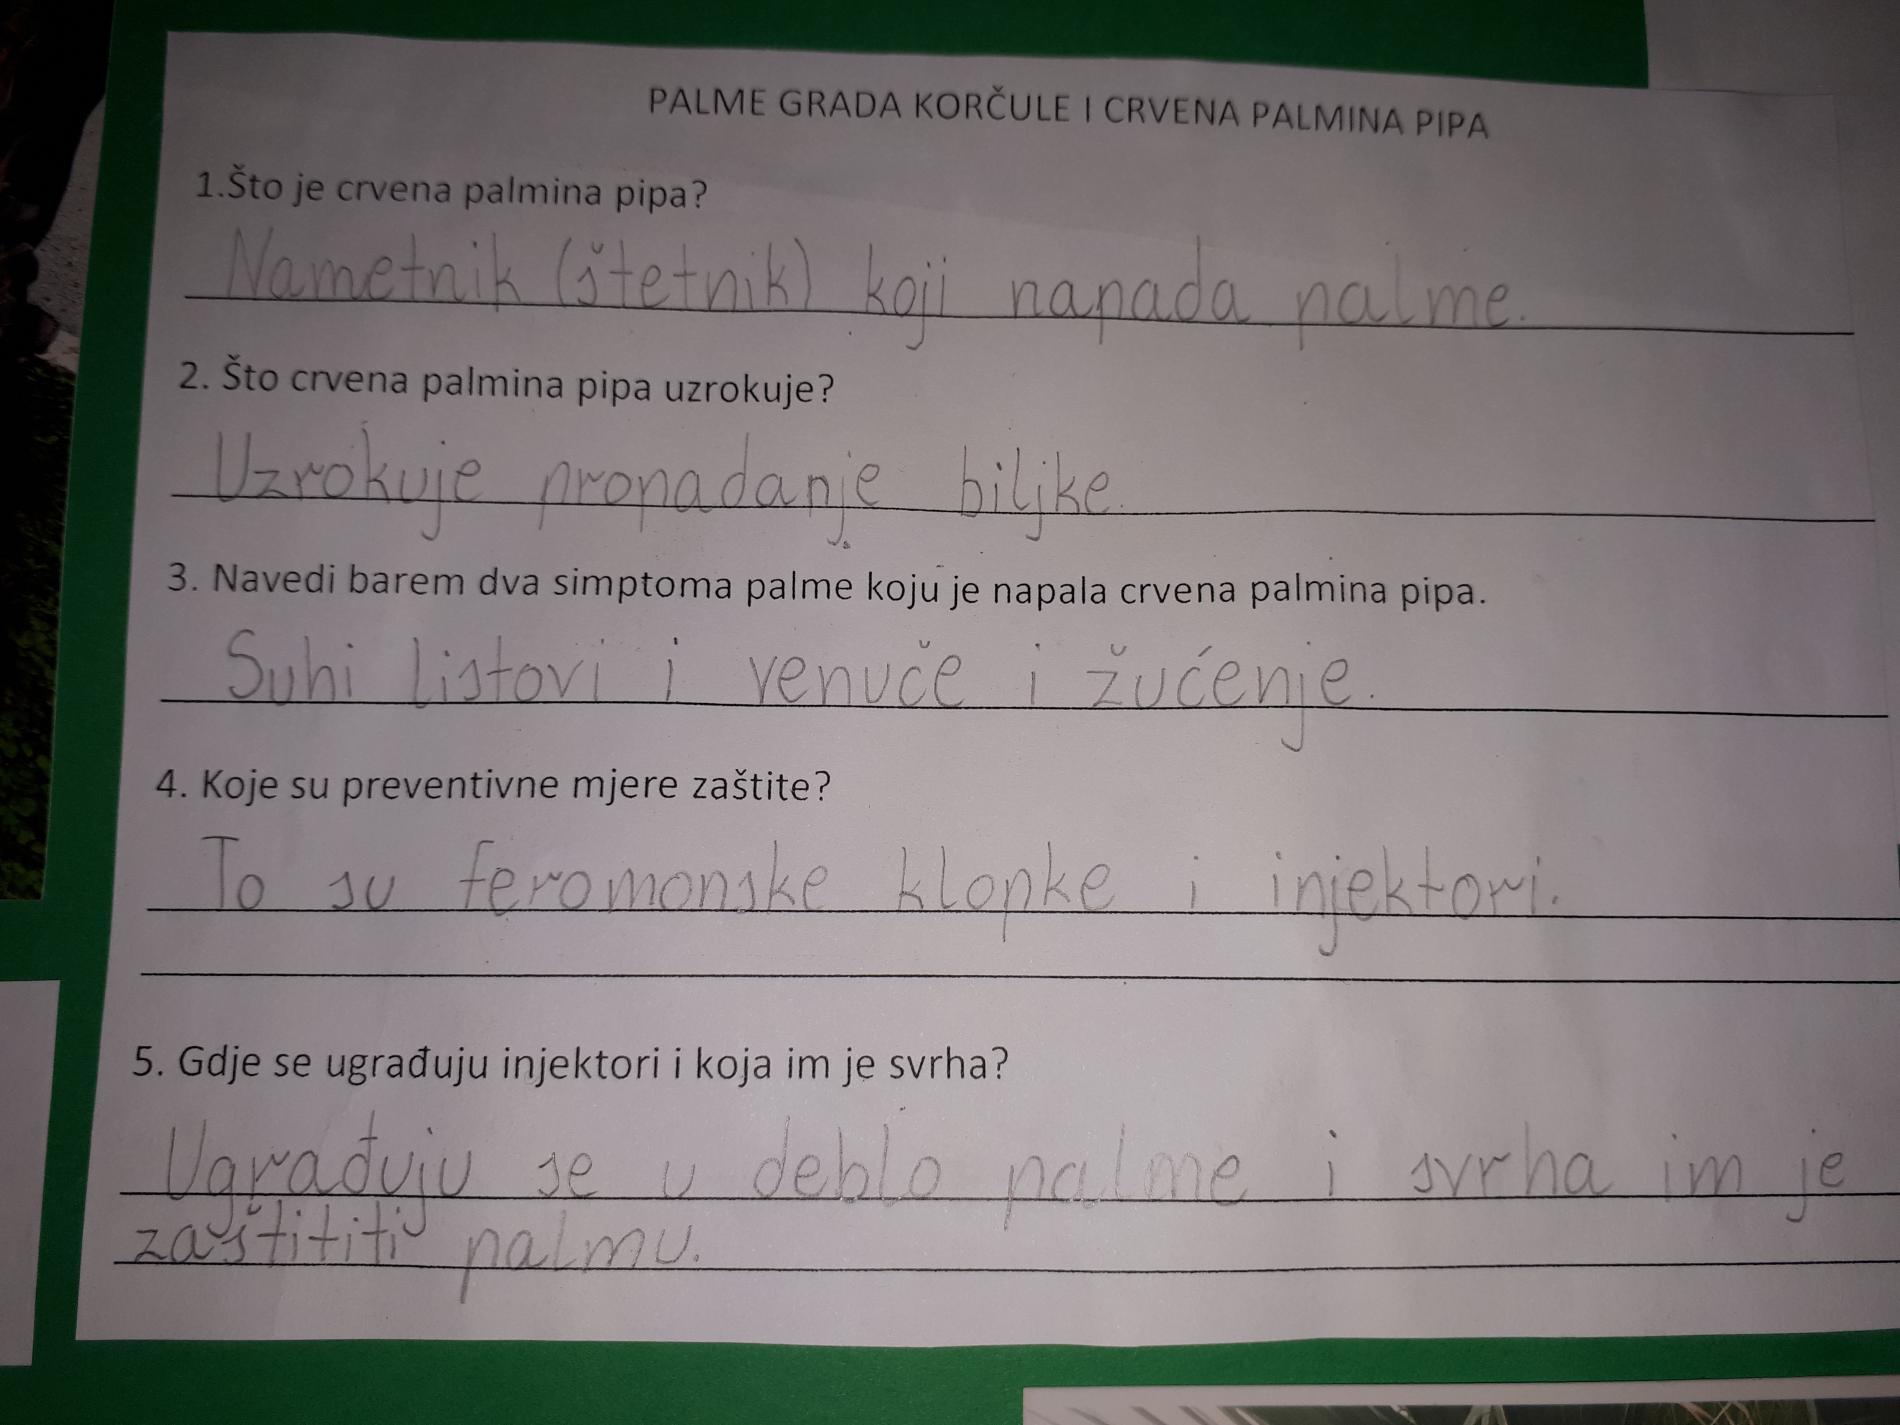 PALME GRADA KORČULE I CRVENA PALMINA PIPA
1.Što je crvena palmina pipa?
Nametnik (štetnik) koji napada palme.
2. Što crvena palmina pipa uzrokuje?
Uzrokuje propadanje biljke.
3. Navedi barem dva simptoma palme koju je napala crvena palmina pipa.
Suhi listovi i venuče i žućenje.
4. Koje su preventivne mjere zaštite?
To su feromonske klopke i injektori.
5. Gdje se ugrađuju injektori i koja im je svrha?
Ugrađuju se u deblo palme i svrha im je
zaštititi palmu.